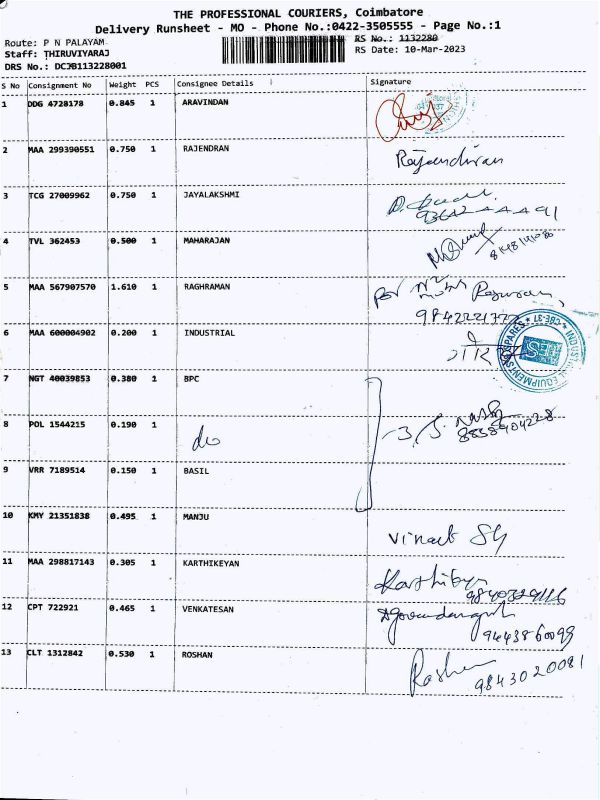 THE PROFESSIONAL COURIERS, Coimbatore
Delivery Runsheet - MO - Phone No.:0422-3505555 - Page No.:1
Route: P N PALAYAM
RS No.: 1132280
Staff: THIRUVIYARAJ
RS Date: 10-Mar-2023
DRS No.: DCJB113228001
S No Consignment No Weight PCS Consignee Details Signature
1 DDG 4728178 0.845 1 ARAVINDAN
2 MAA 299390551 0.750 1 RAJENDRAN Rajendiran
3 TCG 27009962 0.750 1 JAYALAKSHMI
4 TVL 362453 0.500 1 MAHARAJAN
5 MAA 567907570 1.610 1 RAGHRAMAN
6 MAA 600004902 0.200 1 INDUSTRIAL
INDUSTRIAL EQUIPMENTS & SPARES * CBE-37 *
7 NGT 40039853 0.380 1 BPC
8 POL 1544215 0.190 1 do
9 VRR 7189514 0.150 1 BASIL
10 KMY 21351838 0.495 1 MANJU
11 MAA 298817143 0.305 1 KARTHIKEYAN
12 CPT 722921 0.465 1 VENKATESAN
9443860099
13 CLT 1312842 0.530 1 ROSHAN Roshan
9843020081